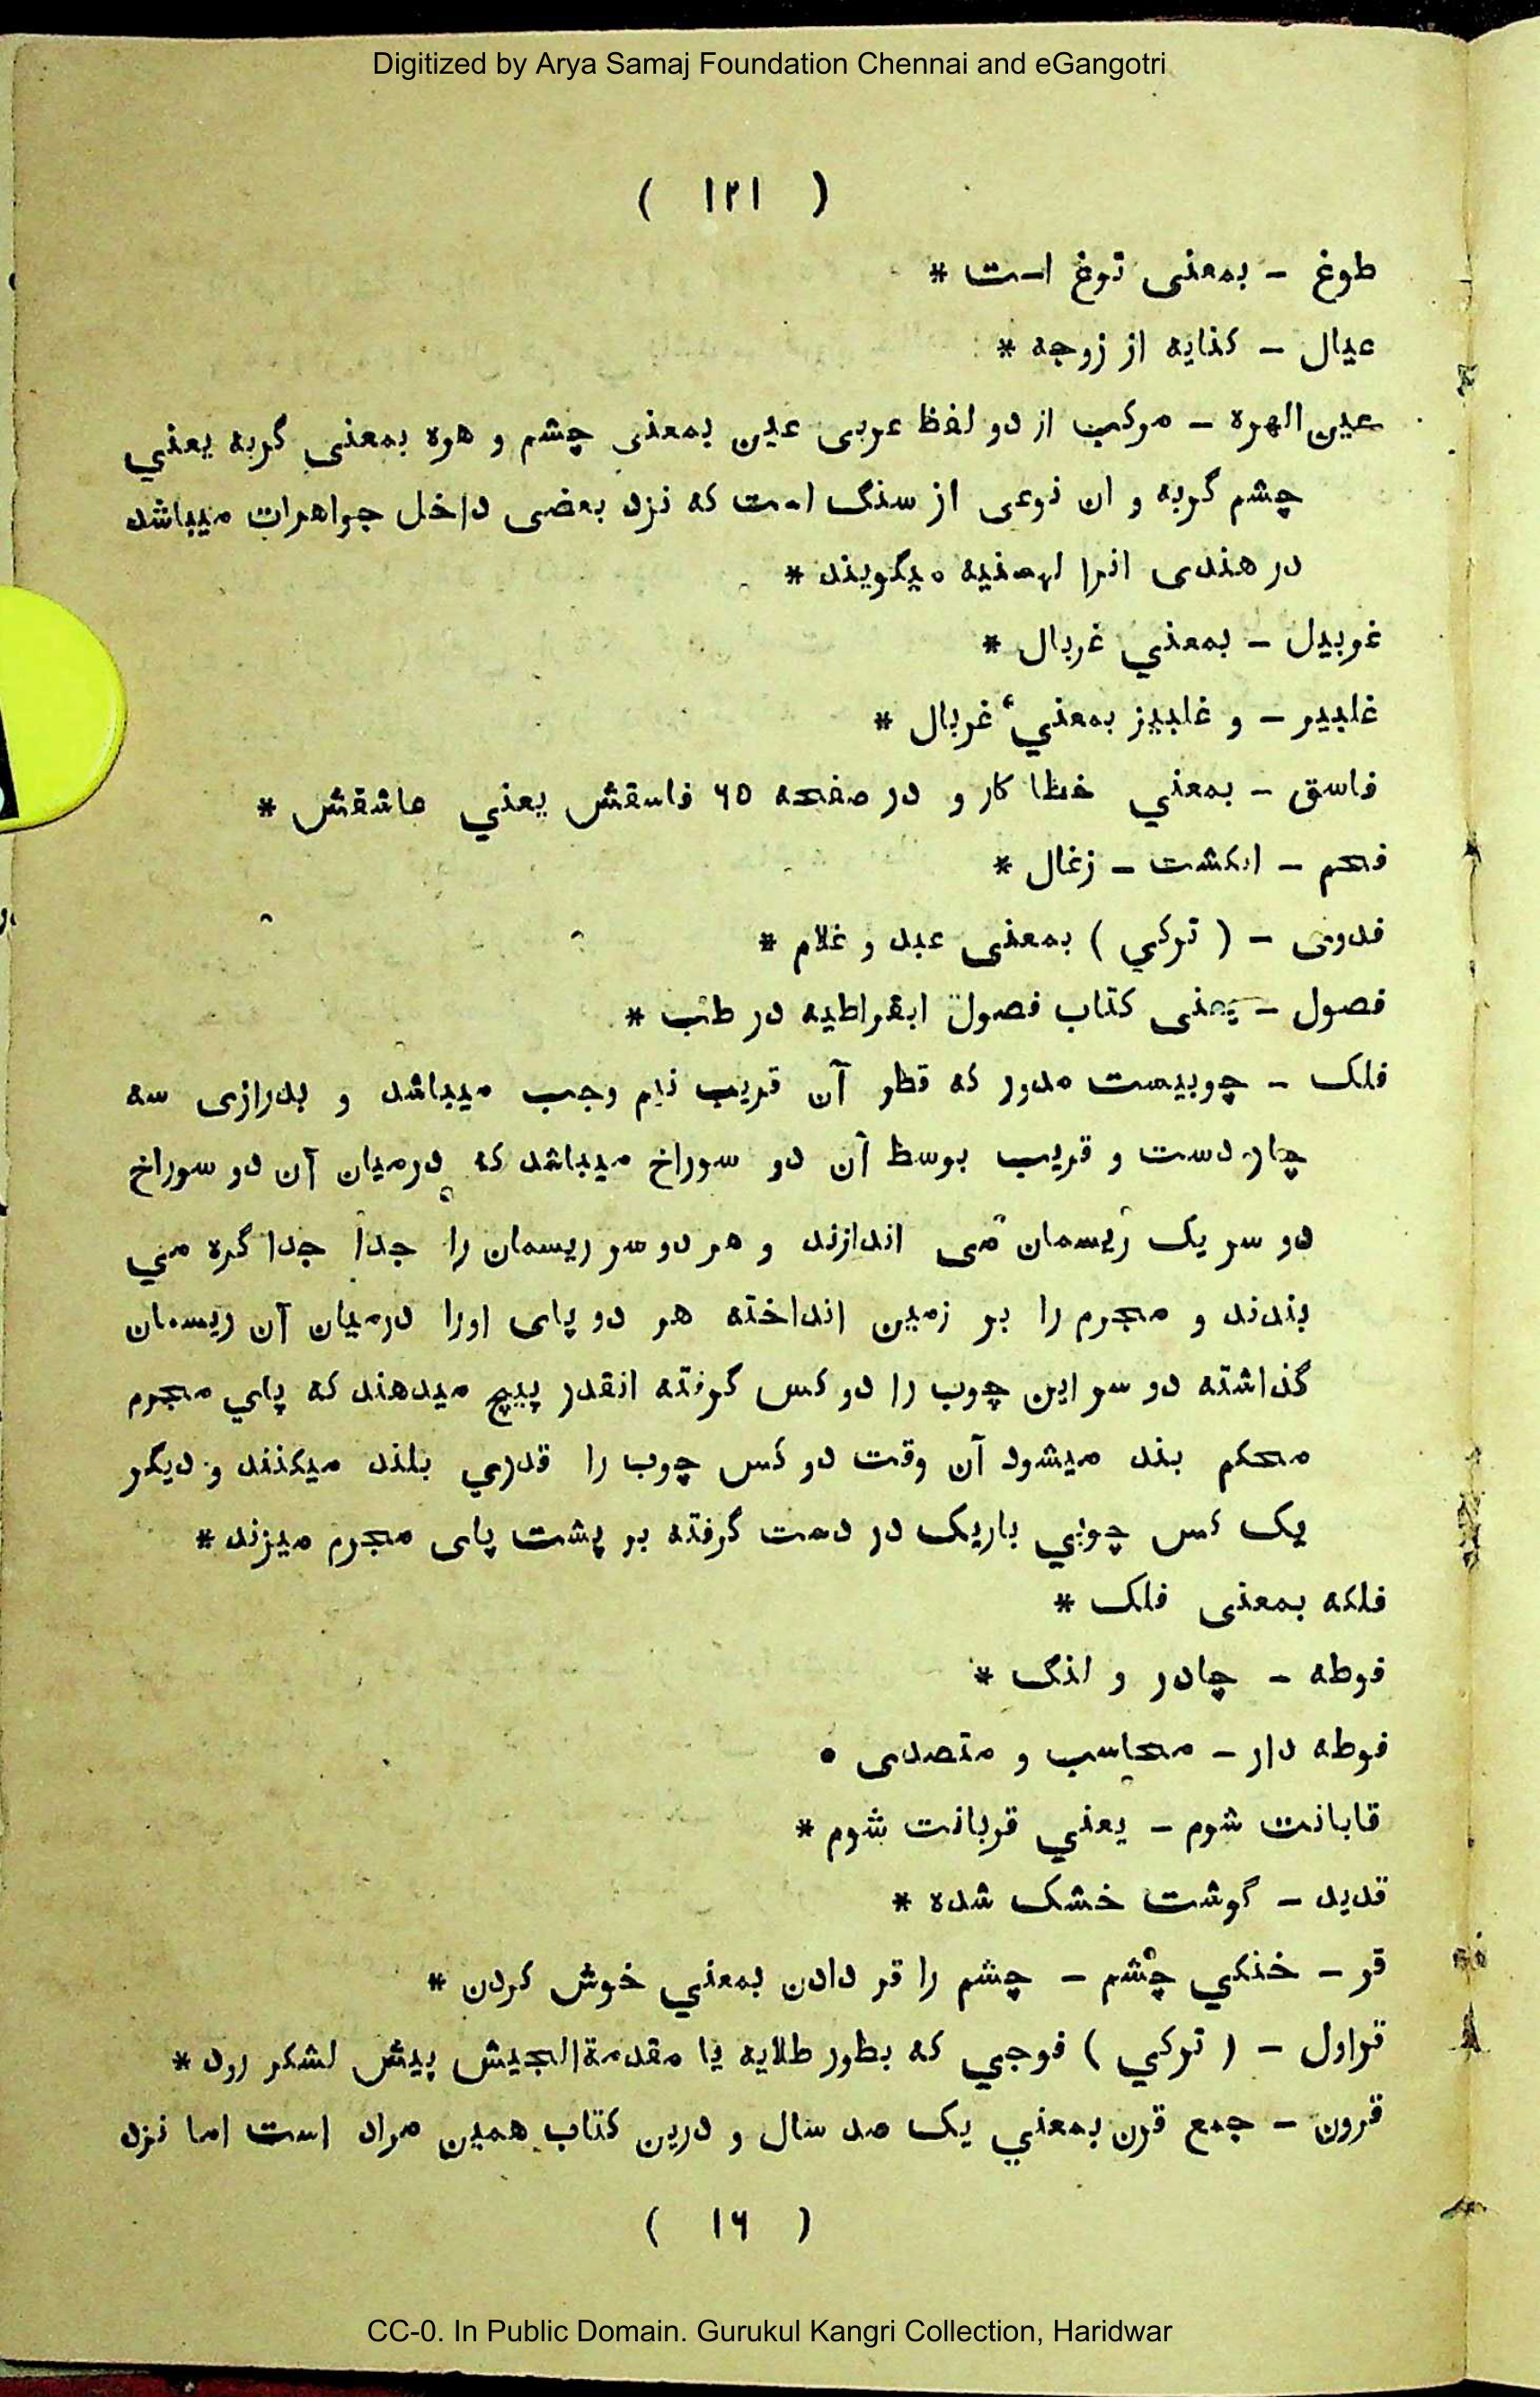 Digitized by Arya Samaj Foundation Chennai and eGangotri
( ۱۲۱ )
طوغ – بمعنی توغ است *
عیال – کنایه از زوجه *
عین الهره – مرکب از دو لفظ عربی عین بمعنی چشم و هره بمعنی گربه یعني
چشم گربه و ان نوعی از سنگ است که نزد بعضی داخل جواهرات میباشد
در هندی انرا لهسنیه میگویند *
غوبیل – بمعني غربال *
غلبیر – و غلبیز بمعني غربال *
فاسق – بمعني خطا کار و در صفحه ۶۵ فاسقش یعني عاشقش *
فحم – انگشت – زغال *
فدوی – ( ترکي ) بمعنی عبد و غلام *
فصول – یعنی کتاب فصول ابقراطیه در طب *
فلک – چوبیست مدور که قطر آن قریب نیم وجب میباشد و بدرازی سه
چار دست و قریب بوسط آن دو سوراخ میباشد که درمیان آن دو سوراخ
دو سر یک ریسمان می اندازند و هر دو سر ریسمان را جدا جدا گره مي
بندند و مجرم را بر زمین انداخته هر دو پای اورا درمیان آن ریسمان
گذاشته دو سر این چوب را دو کس گرفته انقدر پیچ میدهند که پاي مجرم
محکم بند میشود آن وقت دو کس چوب را قدري بلند میکنند و دیگر
یک کس چوبي باریک در دست گرفته بر پشت پای مجرم میزند *
فلکه بمعنی فلک *
فوطه – چادر و لنگ *
فوطه دار – محاسب و متصدی •
قابانت شوم – یعني قربانت شوم *
قدید – گوشت خشک شده *
قر – خنکي چشم – چشم را قر دادن بمعني خوش کردن *
قراول – ( ترکي ) فوجي که بطور طلایه یا مقدمةالجیش پیش لشکر رود *
قرون – جمع قرن بمعني یک صد سال و درین کتاب همین مراد است اما نزد
( ۱۶ )
CC-0. In Public Domain. Gurukul Kangri Collection, Haridwar